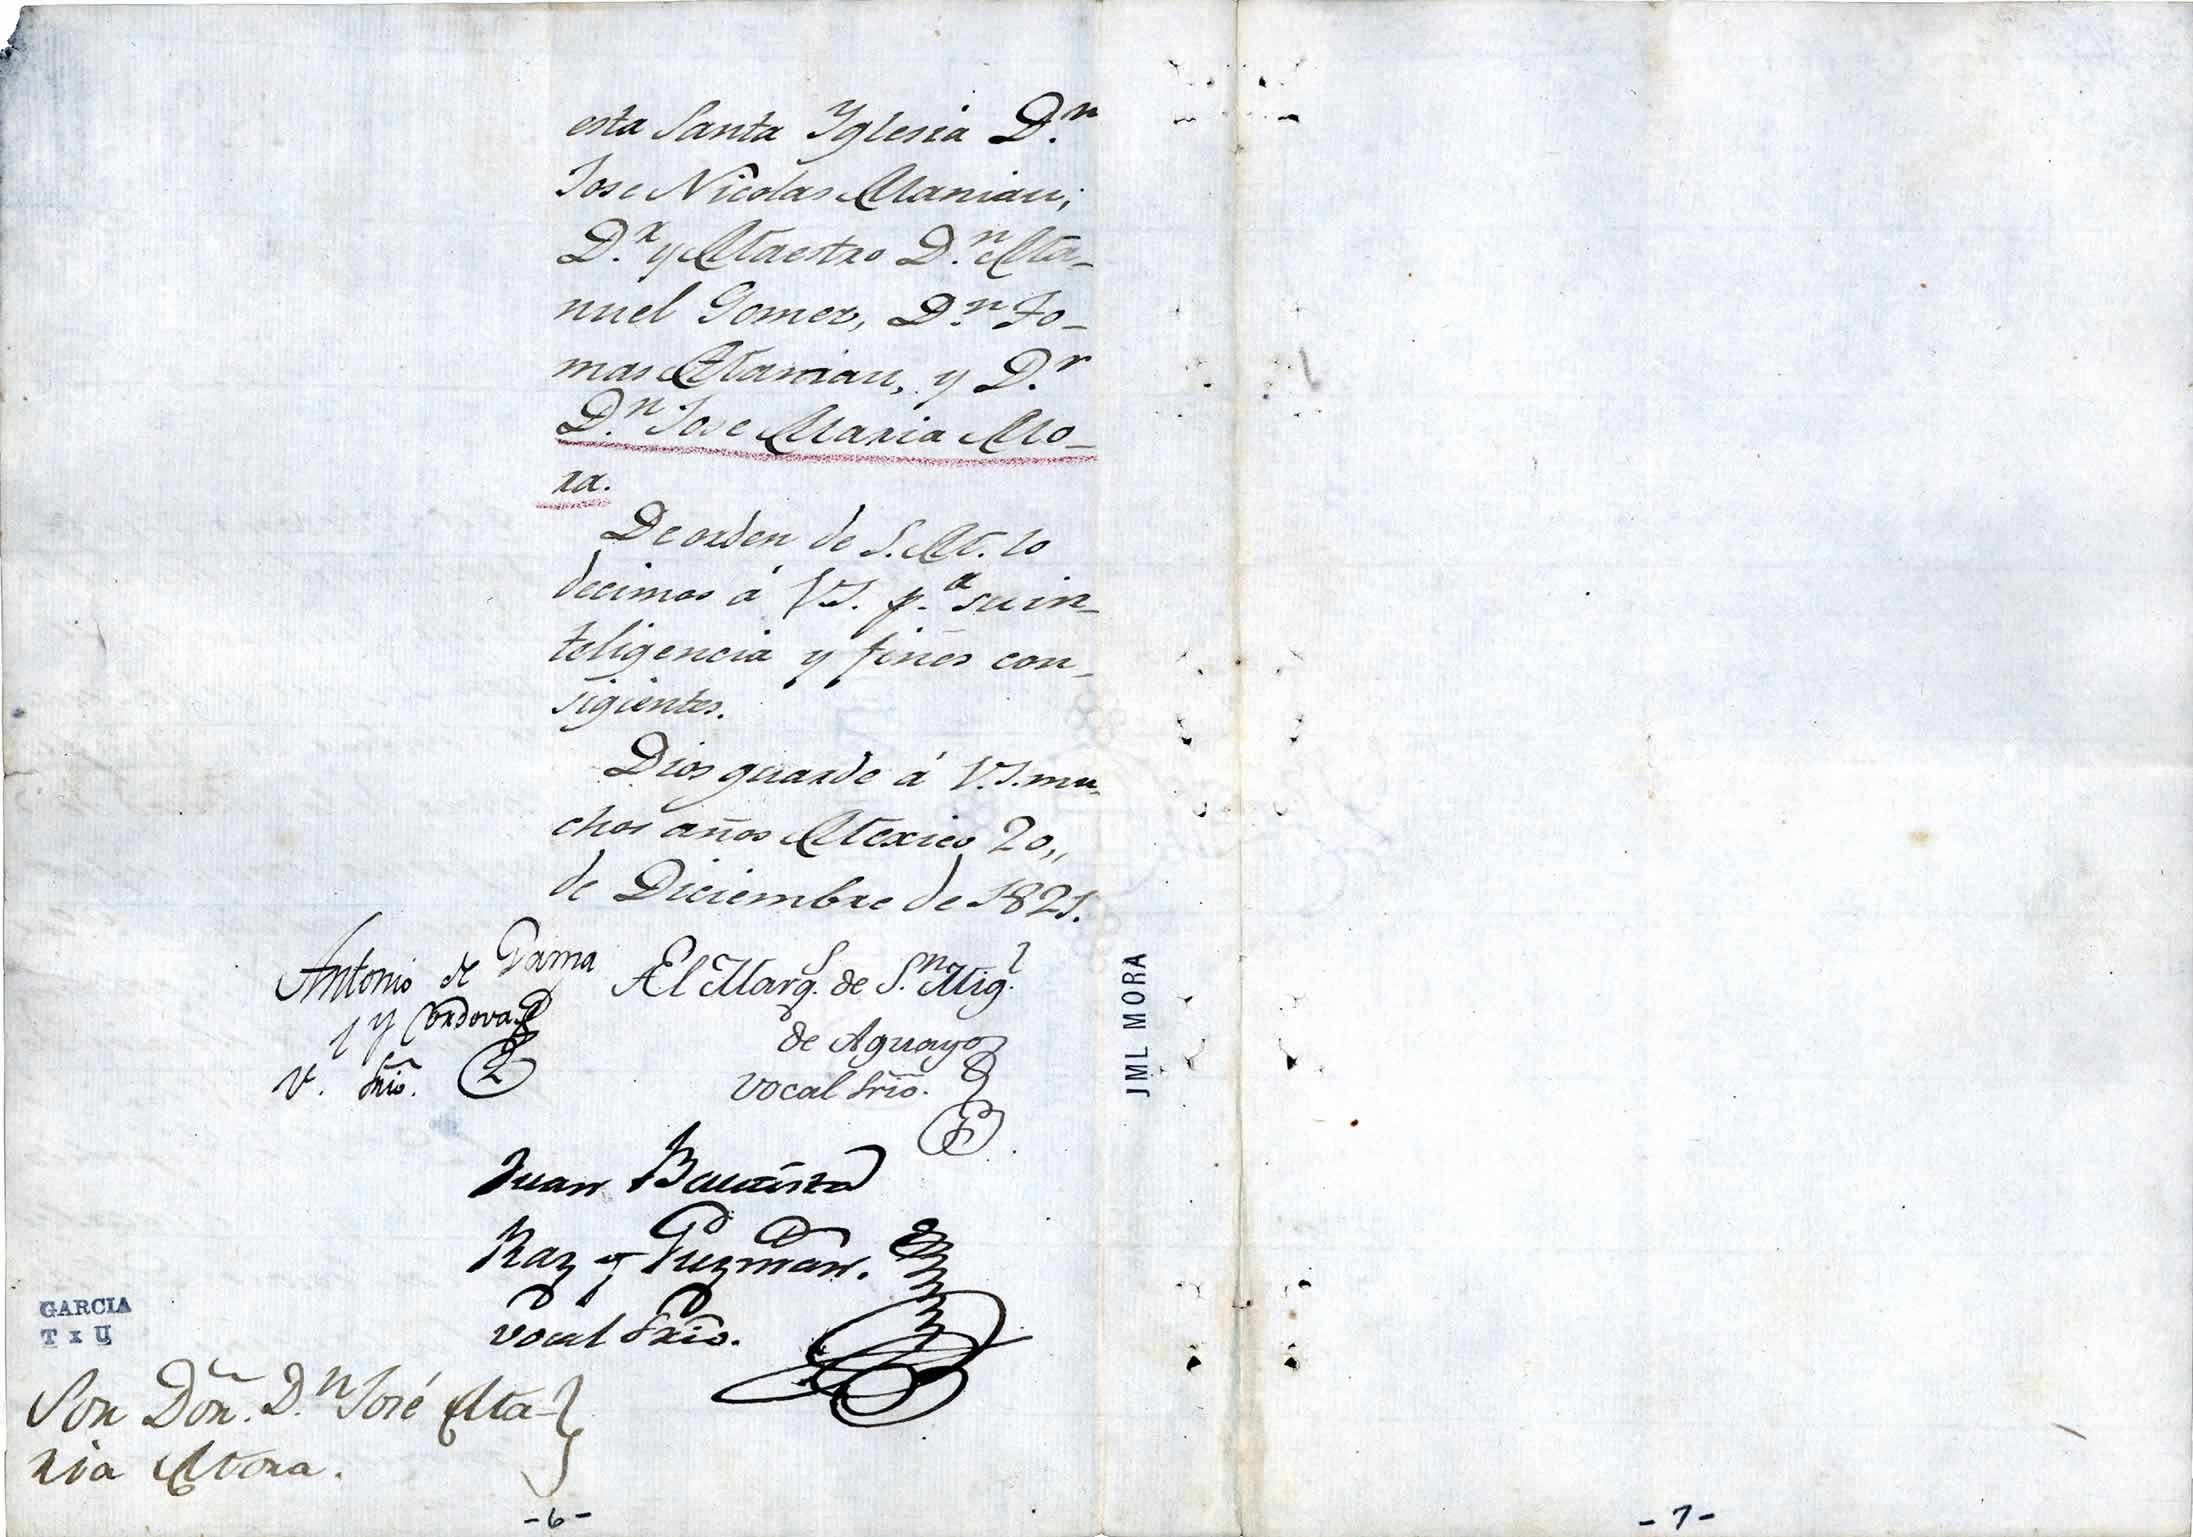 esta Santa Yglesia D.n
Jose Nicolas Maniau;
D.r y Maestro D.n Ma-
nuel Gomez, D.n To-
mas Maniau, y D.r
D.n Jose Maria Mo-
ra.
De orden de S. M. lo
decimos á VS. p.a su in-
teligencia y fines con-
sigientes.
Dios guarde á V.S. mu-
chos años Mexico 20,,
de Diciembre de 1821.
Antonio de Gama
y Cordova
V. Srio.
El Marq.s de S.n Mig.l
de Aguayo
Vocal Srio.
Juan Bautista
Raz y Guzman.
Vocal Srio.
JML MORA
GARCIA
T x U
Sor Dōn. D.n José Ma-
ria Mora.
-6-
-7-